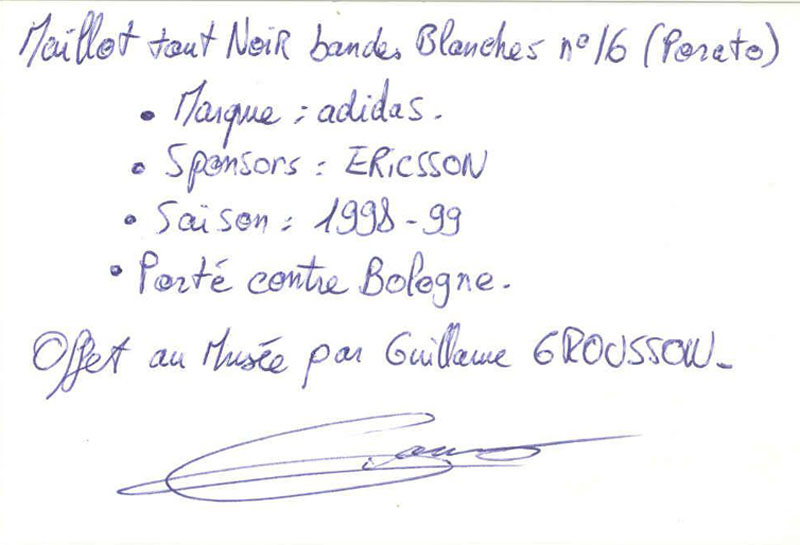 Maillot tout Noir bandes Blanches n°16 (Porato)
• Marque : adidas.
• Sponsors : ERICSSON
• Saison : 1998-99
• Porté contre Bologne.
Offet au Musée par Guillaume GROUSSON.